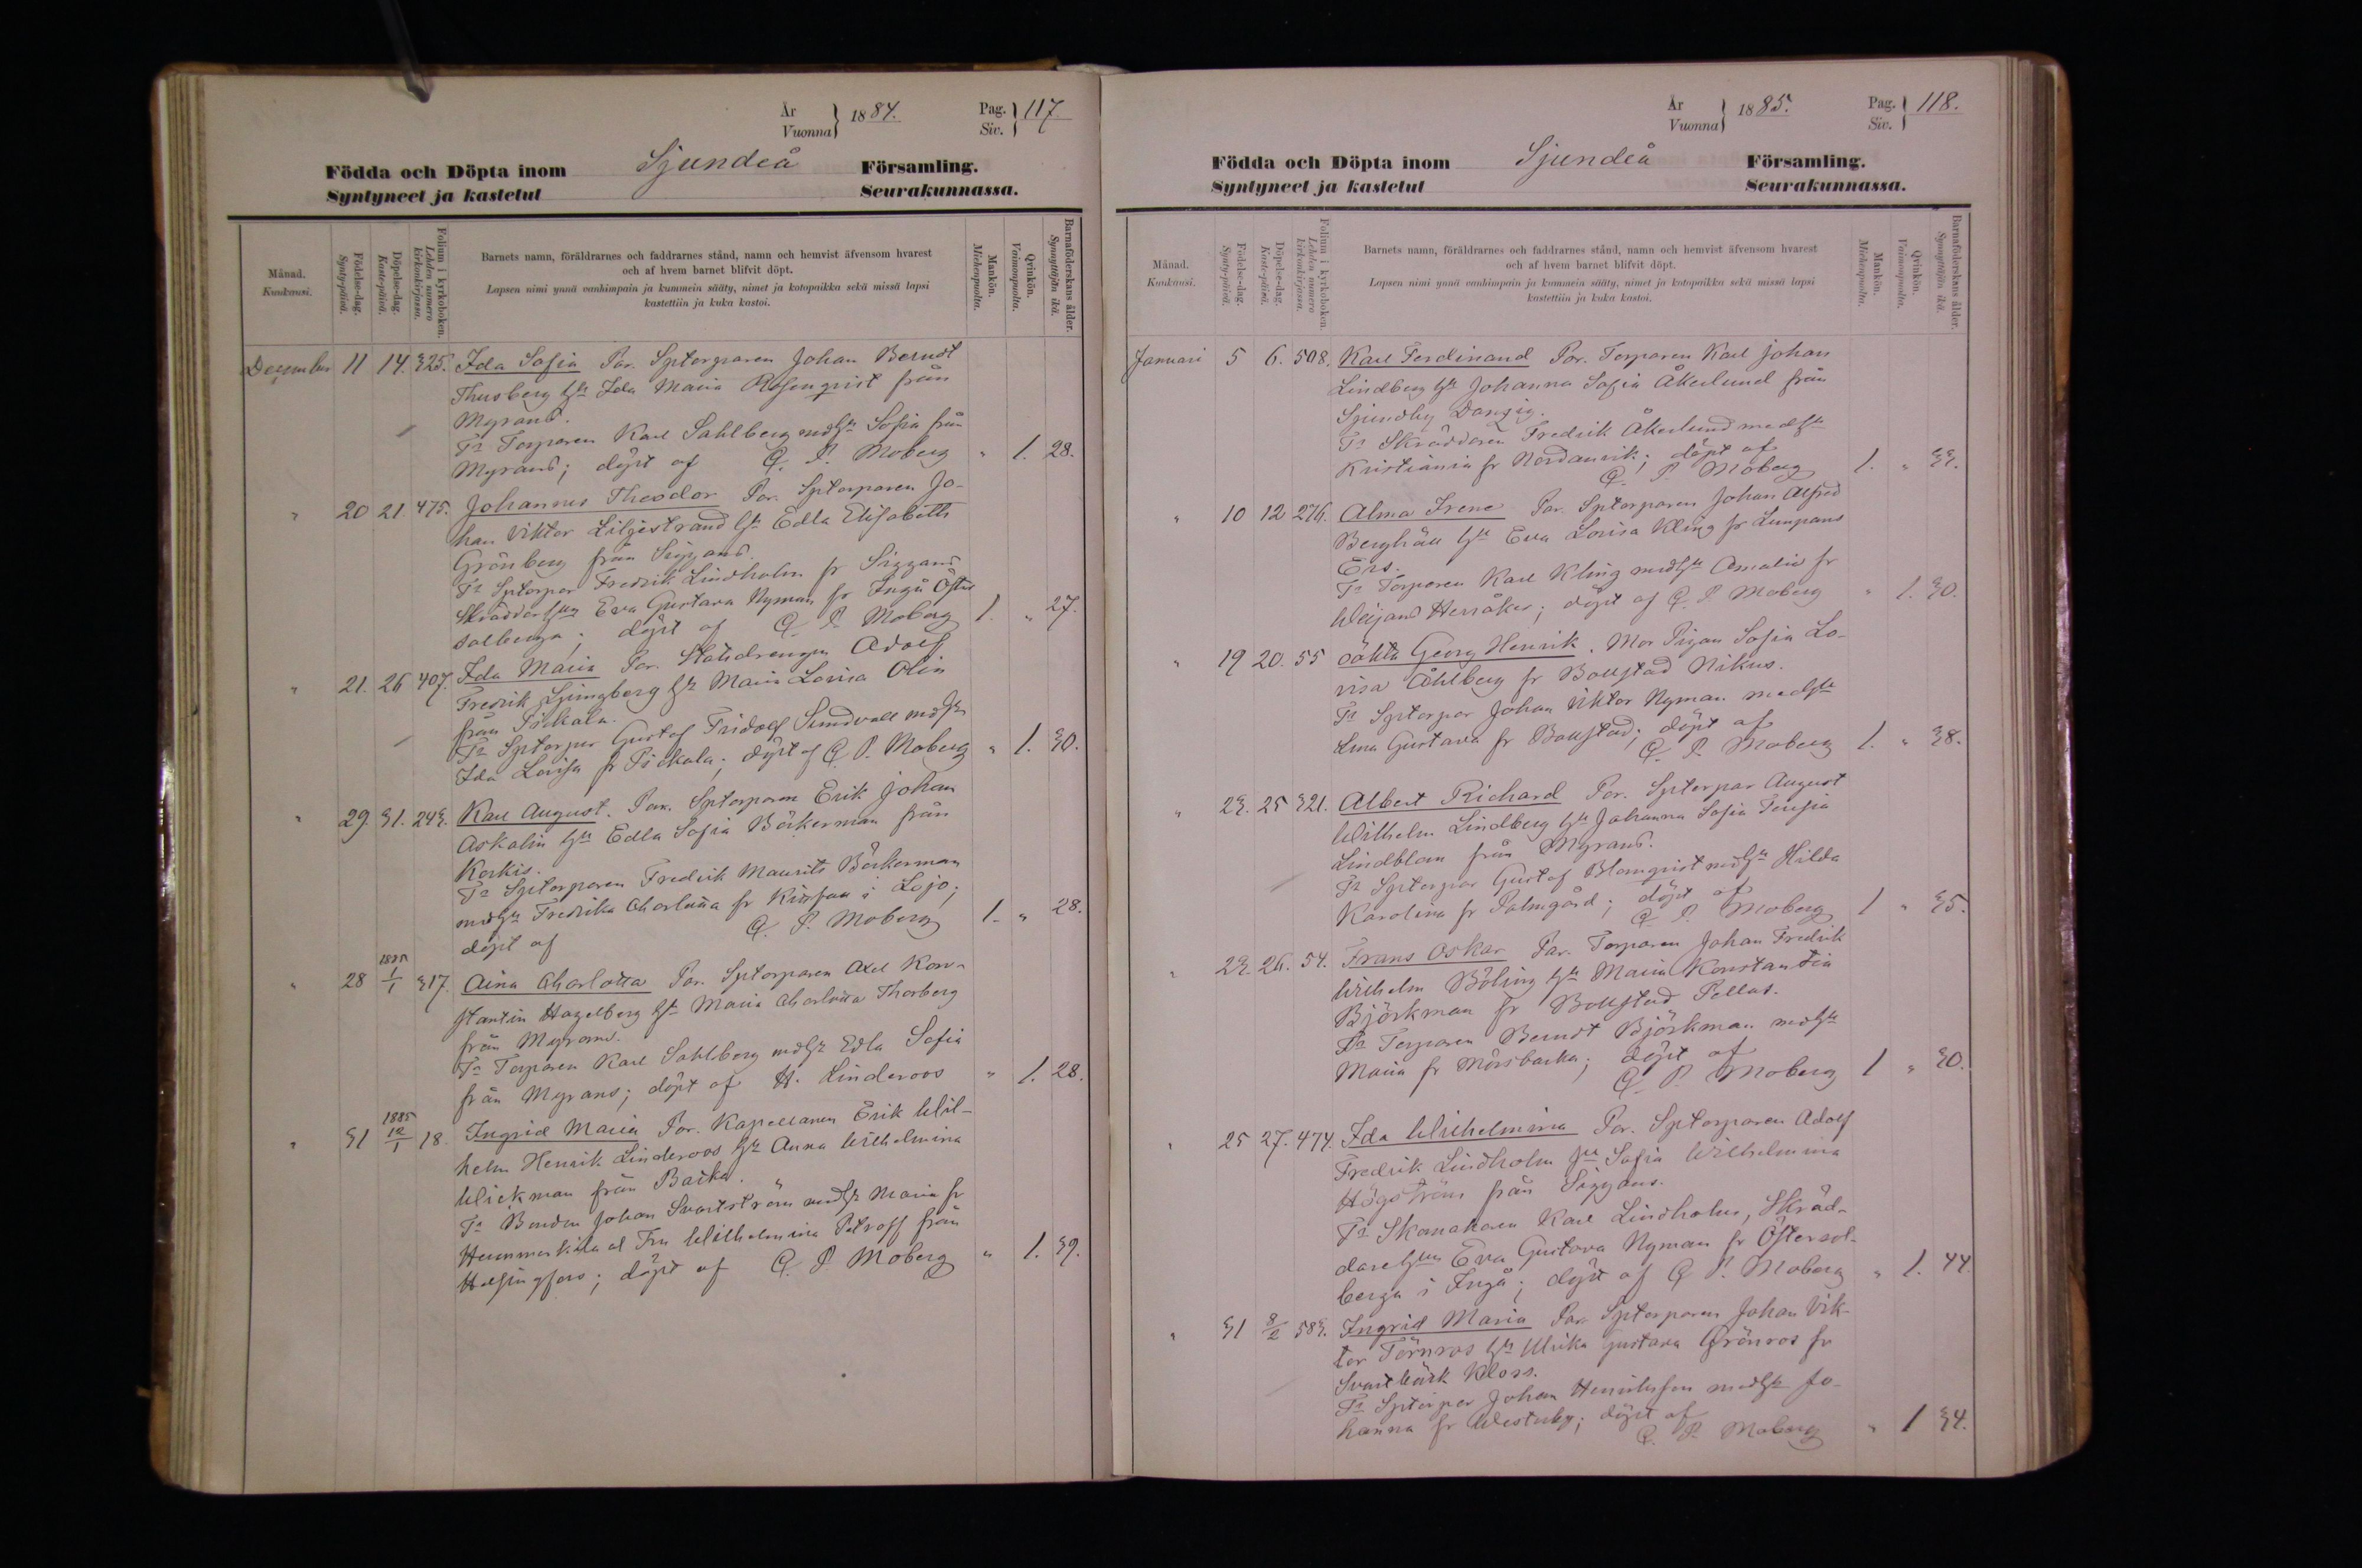 År
Vuonna } 1884. Pag.
Siv. } 117.
Födda och Döpta inom Sjundeå Församling.
Syntyneet ja kastetut Seurakunnassa.
Månad.
Kuukausi.
Födelse-dag.
Synty-päivä.
Döpelse-dag.
Kaste-päivä.
Folium i kyrkoboken.
Lehden numero kirkonkirjassa.
Barnets namn, föräldrarnes och faddrarnes stånd, namn och hemvist äfvensom hvarest
och af hvem barnet blifvit döpt.
Lapsen nimi ynnä vanhimpain ja kummein sääty, nimet ja kotopaikka sekä missä lapsi
kastettiin ja kuka kastoi.
Mankön.
Miehenpuolta.
Qvinkön.
Vaimonpuolta.
Barnaföderskans ålder.
Synnyttäjän ikä.
December 11 14. 325. Ida Sofia För. Sptorparen Johan Berndt
Thusberg hu Ida Maria Rosenqvist från
Myrans.
Fr Torparen Karl Sahlberg md hu Sofia från
Myrans; döpt af G. P. Moberg " 1. 28.
" 20 21. 475. Johannes Theodor För. Sptorparen Jo-
han Viktor Liljestrand hu Edla Elisabeth
Grönberg från Siggans.
Fr Sptorpar Fredrik Lindholm fr Siggans
Eva Gustava Nyman fr Ingå Öster
solberga; döpt af G. P. Moberg 1. " 27.
" 21. 26 407. Ida Maria För. Statsdrengen Adolf
Fredrik Ljungberg hu Maria Lovisa Olin
från Pickala.
Fr Sptorpar Gustaf Fridolf Sundvall md hu
Ida Lovisa fr Pickala; döpt af G. P. Moberg " 1. 30.
" 29. 31. 243. Karl August. För. Sptorparen Erik Johan
Askolin hu Edla Sofia Böckerman från
Korkis.
Fr Sptorparen Fredrik Maurits Böckerman
md hu Fredrika Charlotta fr i Lojo;
döpt af G. P. Moberg 1. " 28.
" 28 1885 1/1 317. Aina Charlotta För. Sptorparen Axel Kon-
stantin Hagelberg hu Maria Charlotta Thorberg
från Myrans.
Fr Torparen Karl Sahlberg md hu Edla Sofia
från Myrans; döpt af H. Linderoos " 1. 28.
" 31 1885 12/1 18. Ingrid Maria För. Kapellanen Erik Wil-
helm Henrik Linderoos hu Anna Wilhelmina
Wickman från Backa.
Fr Bonden Johan Svartström md hu Maria fr
Hummerkila Fru Wilhelmina Petroff från
Helsingfors; döpt af G. P. Moberg " 1. 39.
År
Vuonna } 1885. Pag.
Siv. } 118.
Födda och Döpta inom Sjundeå Församling.
Syntyneet ja kastetut Seurakunnassa.
Månad.
Kuukausi.
Födelse-dag.
Synty-päivä.
Döpelse-dag.
Kaste-päivä.
Folium i kyrkoboken.
Lehden numero kirkonkirjassa.
Barnets namn, föräldrarnes och faddrarnes stånd, namn och hemvist äfvensom hvarest
och af hvem barnet blifvit döpt.
Lapsen nimi ynnä vanhimpain ja kummein sääty, nimet ja kotopaikka sekä missä lapsi
kastettiin ja kuka kastoi.
Mankön.
Miehenpuolta.
Qvinkön.
Vaimonpuolta.
Barnaföderskans ålder.
Synnyttäjän ikä.
Januari 5 6. 508. Karl Ferdinand För. Torparen Karl Johan
Lindberg hu Johanna Sofia Åkerlund från
Sjundby Danzig.
Fr Skräddaren Fredrik Åkerlund med hu
Kristiania fr Nordanvik; döpt af
G. P. Moberg 1. " 33.
" 10 12 276. Alma Irene För. Sptorparen Johan Alfred
Berghäll hu Eva Lovisa Kling fr Lempans
Ers.
Fr Torparen Karl Kling md hu Amalia fr
Weijans Herråker; döpt af G. P. Moberg " 1. 30.
" 19 20. 55 oäkta Georg Henrik. Mor Pigan Sofia Lo-
visa Åhlberg fr Bollstad Nikus.
Fr Sptorpar Johan Viktor Nyman med hu
Lena Gustava fr Bollstad; döpt af
G. P. Moberg 1. " 38.
" 23. 25 321. Albert Richard För. Sptorpar August
Wilhelm Lindberg hu Johanna Sofia
Lindblom från Myrans.
Fr Sptorpar Gustaf Blomqvist md hu Hilda
Karolina fr Palmgård; döpt af
G. P. Moberg 1 " 35.
" 23. 26. 54. Frans Oskar För. Torparen Johan Fredrik
Wilhelm Böling hu Maria Konstantia
Björkman fr Bollstad Pellas.
Fr Torparen Berndt Björkman md hu
Maria fr Mörsbacka; döpt af
G. P. Moberg 1 " 30.
" 25 27. 474. Ida Wilhelmina För. Sptorparen Adolf
Fredrik Lindholm hu Sofia Wilhelmina
Högström från Siggans.
Fr Skomakaren Karl Lindholm, Skräd-
Eva Gustava Nyman fr Östersol-
berga i Ingå; döpt af G. P. Moberg " 1. 44.
" 31 8/2 583. Ingrid Maria För. Sptorparen Johan Vik-
tor Törnros hu Ulrika Gustava Grönros fr
Svartbäck Kloss.
Fr Sptorpar Johan Henriksson med hu Jo-
hanna fr Westerby; döpt af
G. P. Moberg " 1 34.